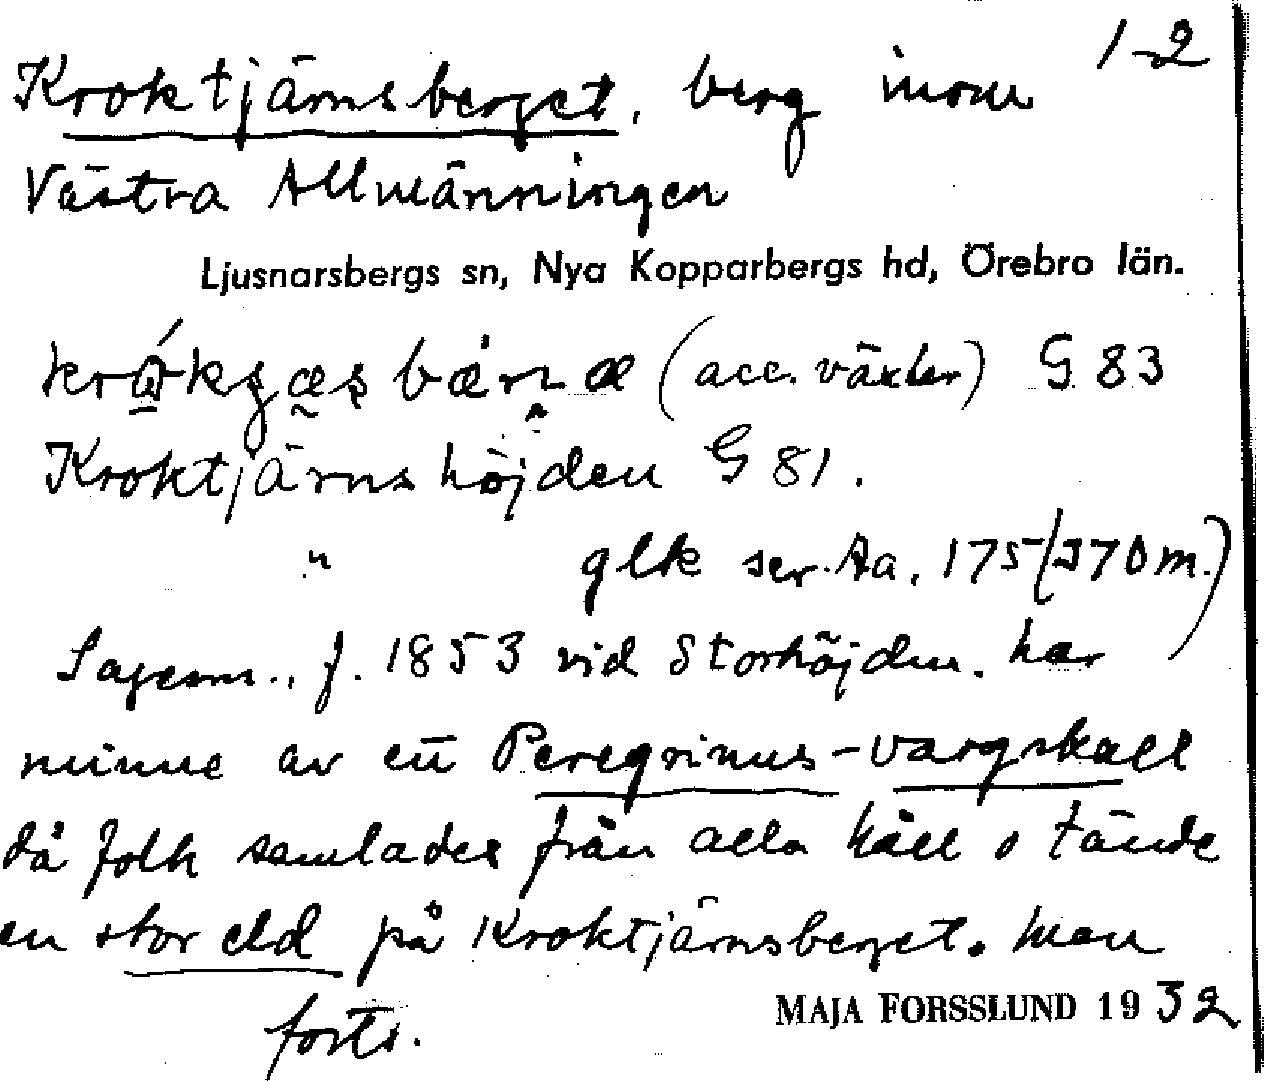 1-2
Kroktjärnsberget, berg inom
Västra Allmänningen
Ljusnarsbergs sn, Nya Kopparbergs hd, Örebro län.
(acc. växlar) G 83
Kroktjärnshöjden G 81.
" glk ser. Aa. 175 (370 m.)
Sagesm., f. 1853 vid Storhöjden. har
minne av en Peregrinus-vargskall
då folk samlades från alla håll o tände
en stor eld på Kroktjärnsberget. Man
forts.
MAJA FORSSLUND 1932